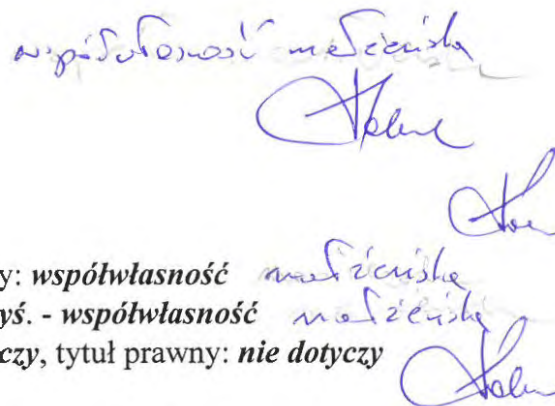 współwłasność małżeńska
y: współwłasność małżeńska
yś. - współwłasność małżeńska
czy, tytuł prawny: nie dotyczy